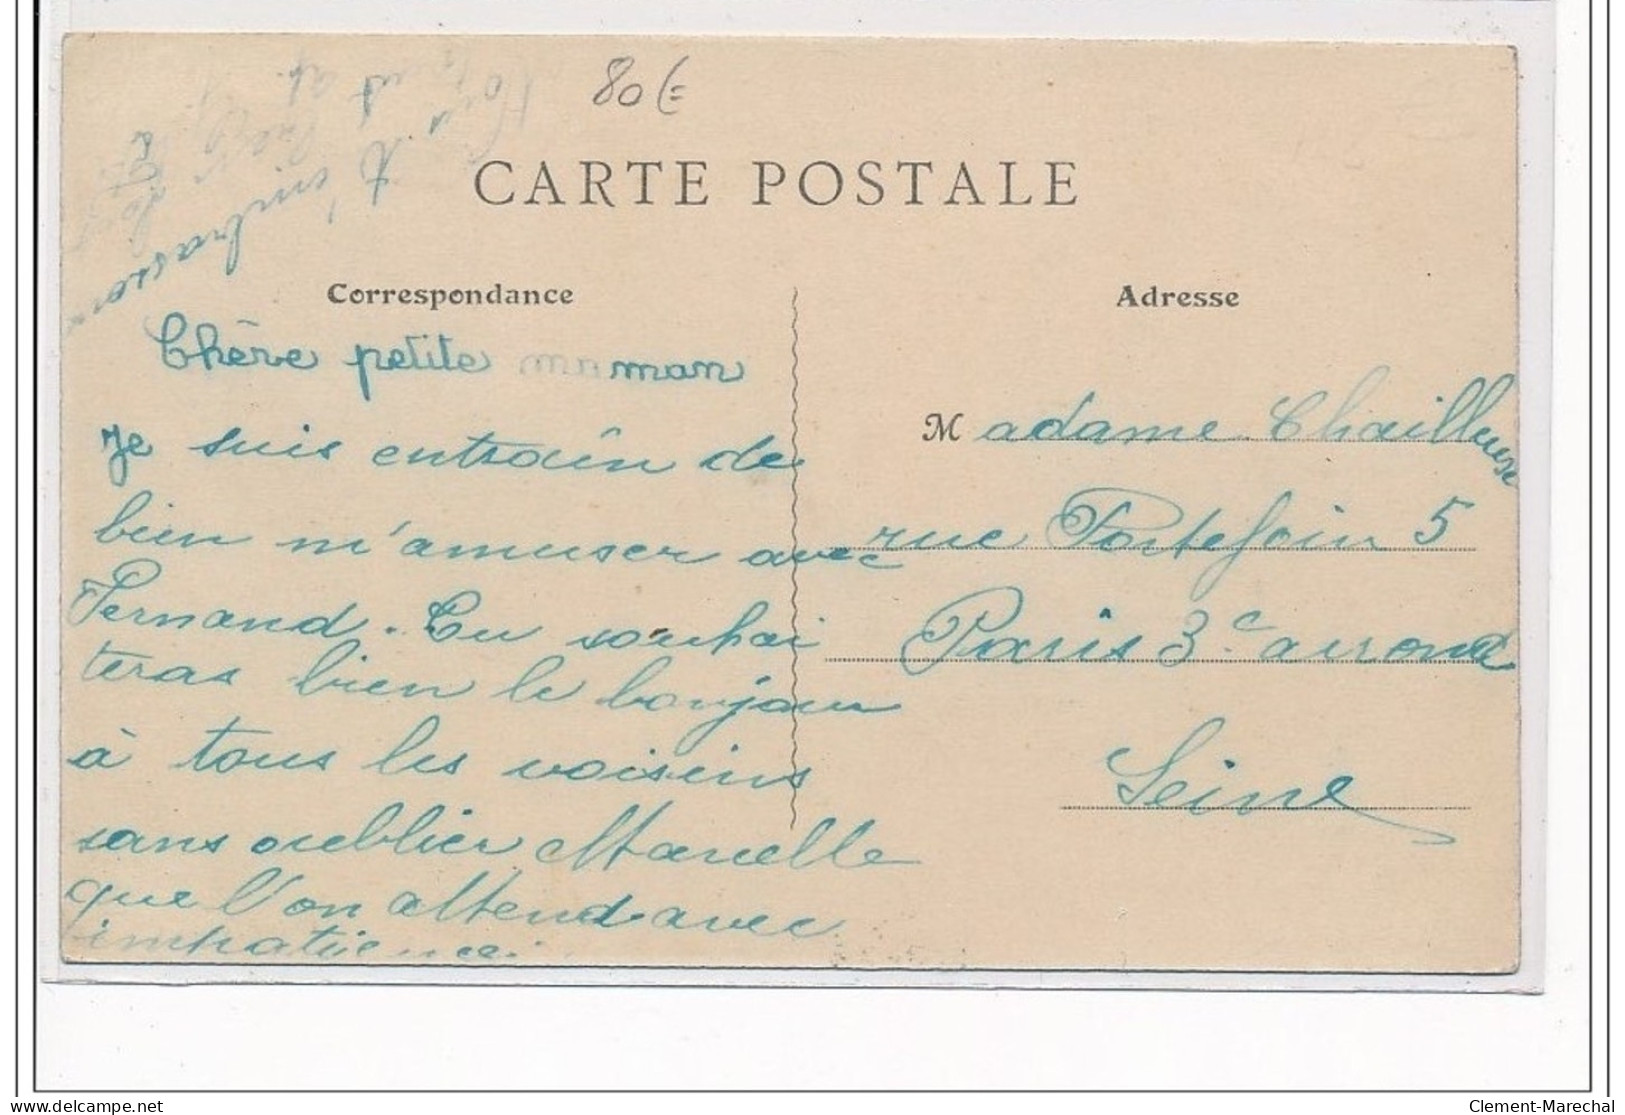 80 €
CARTE POSTALE
Correspondance
Chère petite maman
Je suis entrain de
bien m'amuser avec
Fernand. Tu souhai
teras bien le bonjour
à tous les voisins
sans oublier Marcelle
que l'on attend avec
impatience.
t'embrasson
Adresse
Madame Chailleuse
rue Portefoin 5
Paris 3e arrond
Seine
delcampe.net
Clement-Marechal